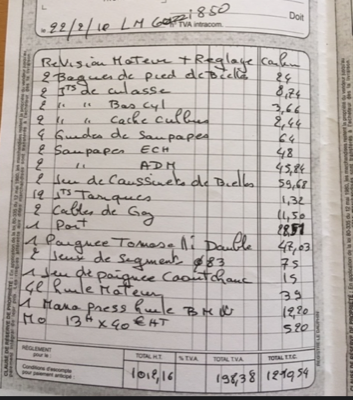 Doit
22/2/10 LM 1850
TVA intracom.
Révision Moteur + Réglage Carbu
2 Bagues de pied de Bielle 24
2 JTS de culasse 8,24
2 " " Bas cyl 3,66
2 " " cache culbu 2,44
4 Guides de Soupapes 64
2 Soupapes ECH 48
2 " ADM 45,84
2 Jeu de Coussinets de Bielles 59,68
JTS Toriques 1,32
2 Cables de Gaz 11,50
1 Port
1 Poignée Tomaselli Double 47,03
2 Jeux de Segments ø83 75
1 Jeu de poignée Caoutchouc 15
4L huile Moteur 39
1 Mano press huile BMW 1220
MO 13H x 40 € HT 520
RÈGLEMENT
pour le :
Conditions d'escompte
pour paiement anticipé :
TOTAL H.T. % T.V.A. TOTAL T.V.A. TOTAL T.T.C.
1018,16 198,38 1219,54